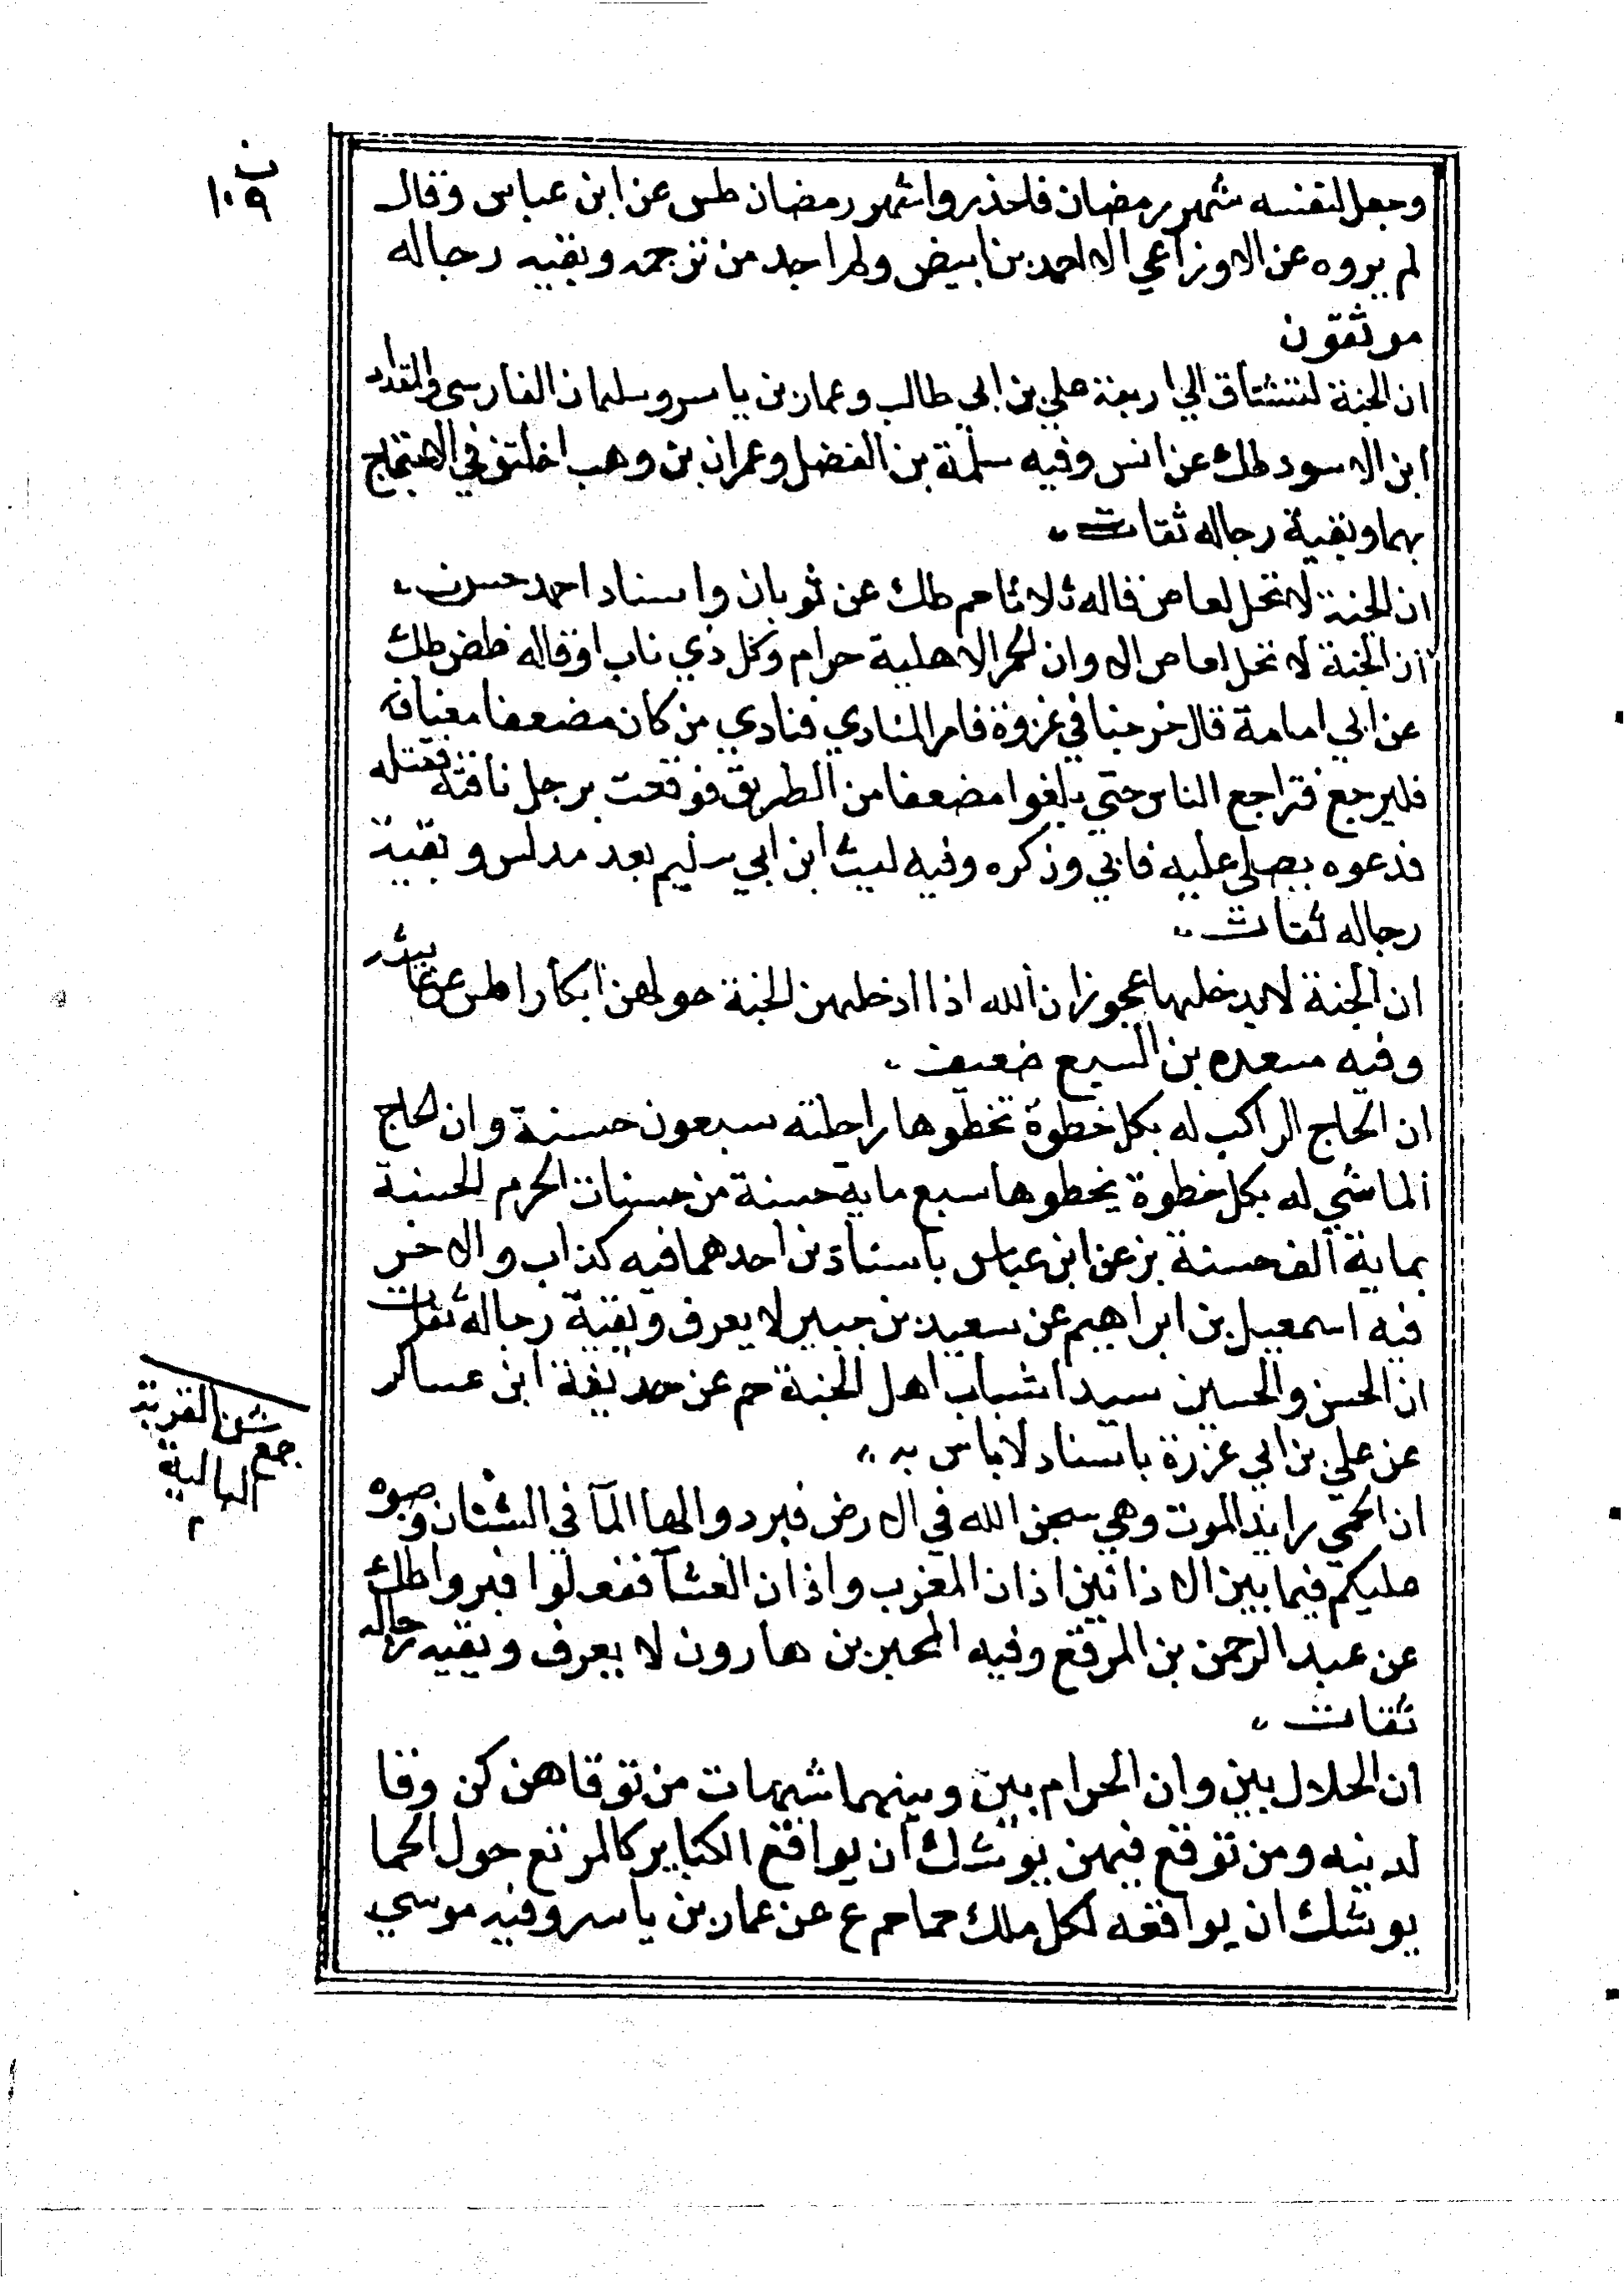 ن
١٠٩
وجعل لنفسه شهر رمضان فاحذروا شهر رمضان طس عن ابن عباس وقال
لم يروه عن الاوزاعي الا احمد بن ابيض ولم اجد من ترجمه وبقيه رجاله
موثقون
ان الجنة لتشتاق الي اربعة علي بن ابي طالب وعمار بن ياسر وسلمان الفارسي والمقداد
ابن الاسود طك عن انس وفيه سلمة بن الفضل وعمران بن وهب اختلف في الاحتجاج
بهما وبقية رجاله ثقات
ان الجنة لا تحل لعاص قاله ثلاثا حم طك عن ثوبان واسناد احمد حسن
ان الجنة لا تحل لعاص الا وان الحمر الاهلية حرام وكل ذي ناب او قاله ظفر طك
عن ابي امامة قال خرجنا في غزوة فامر المنادي فنادي من كان مضعفا
فليرجع فتراجع الناس حتي بلغوا مضعفا من الطريق فوقعت برجل ناقته فقتله
فدعوه يصلي عليه فابي وذكره وفيه ليث ابن ابي سليم بعد مدلس وبقية
رجاله ثقات
ان الجنة لا يدخلها عجوز ان الله اذا ادخلهن الجنة حولهن ابكارا طس عن عائشه
وفيه مسعده بن اليسع ضعيف
ان الحاج الراكب له بكل خطوة تخطوها راحلته سبعون حسنة وان الحاج
الماشي له بكل خطوة يخطوها سبع ماية حسنة من حسنات الحرم الحسنة
بماية الف حسنة بز عن ابن عباس باسنادين احدهما فيه كذاب والاخر
فيه اسمعيل بن ابراهيم عن سعيد بن جبير لا يعرف وبقية رجاله ثقات
ان الحسن والحسين سيدا شباب اهل الجنة حم عن حذيفة ابن عساكر
عن علي بن ابي عزرة باسناد لاباس به
ان الحمي رايد الموت وهي سجن الله في الارض فبردوا لها المآ في الشنان وصبوه
عليكم فيما بين الاذانين اذان المغرب واذان العشآ ففعلوا فبروا طك
عن عبد الرحمن بن المرقع وفيه المحبر بن هارون لا يعرف وبقيه رجاله
ثقات
ان الحلال بين وان الحرام بين وبينهما شبهات من توقاهن كن وقا
لدينه ومن توقع فيهن يوشك ان يواقع الكباير كالمرتع حول الحما
يوشك ان يواقعه لكل ملك حما حم ع عن عمار بن ياسر وفيه موسي
شن القربة
جمع
البالية
٢